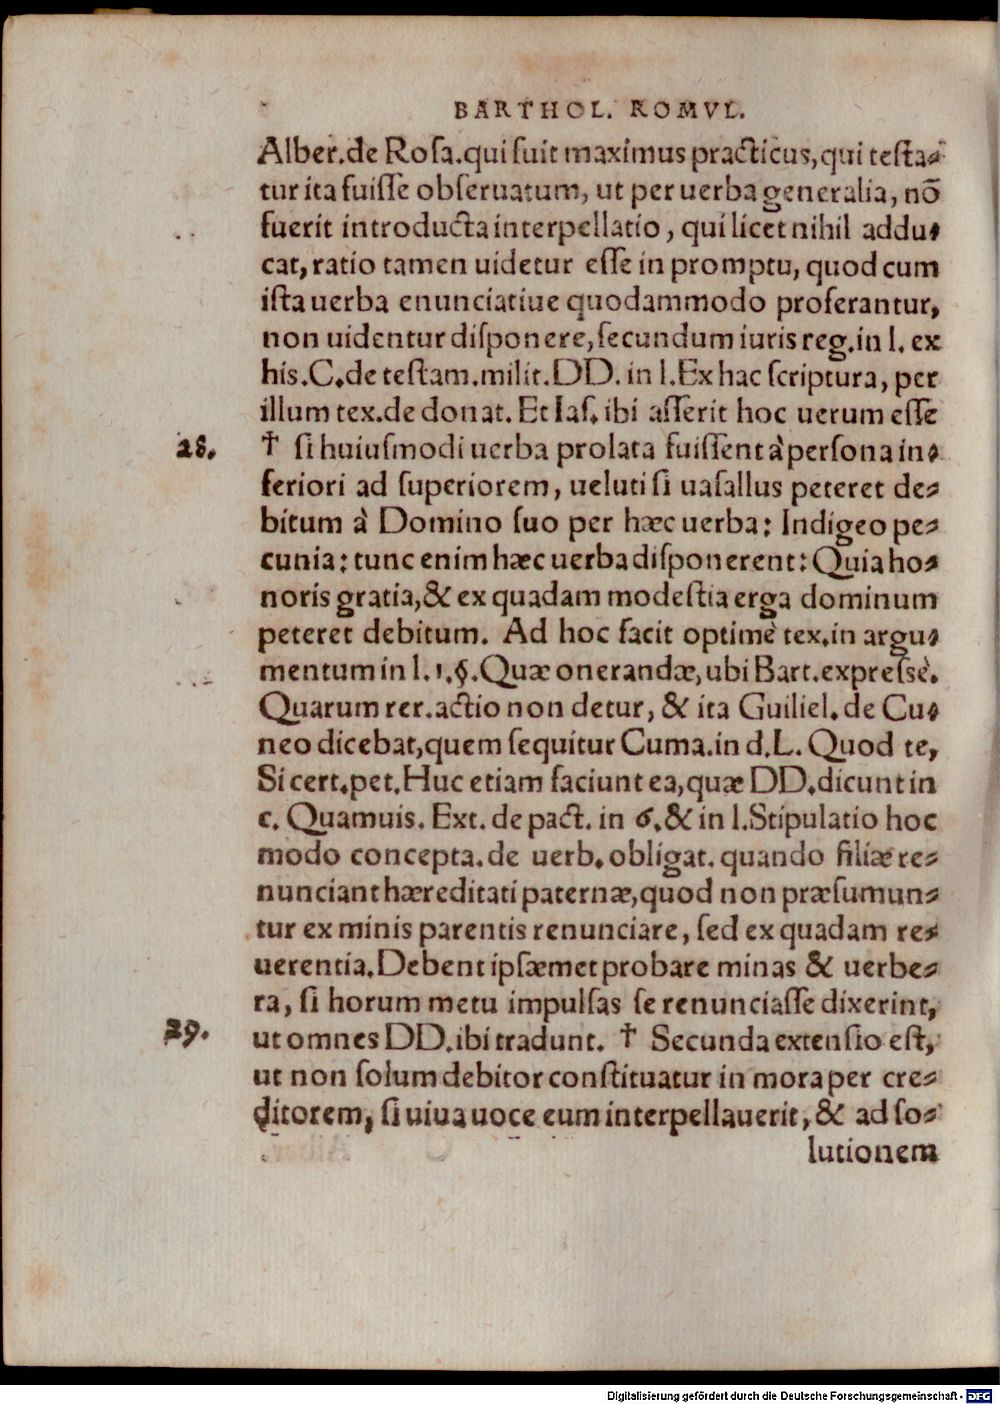 BARTHOL. ROMVL.
Alber.de Roſa.qui fuit maximus practicus,qui teſta-
tur ita fuiſſe obſeruatum, ut per uerba generalia, nō
fuerit introducta interpellatio, qui licet nihil addu-
cat, ratio tamen uidetur eſſe in promptu, quod cum
iſta uerba enunciatiue quodammodo proferantur,
non uidentur diſponere, ſecundum iuris reg.in l. ex
his.C.de teſtam.milit.DD. in l.Ex hac ſcriptura, per
illum tex.de donat. Et Iaſ. ibi aſſerit hoc uerum eſſe
28. † ſi huiuſmodi uerba prolata fuiſſent à perſona in-
feriori ad ſuperiorem, ueluti ſi uaſallus peteret de-
bitum à Domino ſuo per hæc uerba: Indigeo pe-
cunia: tunc enim hæc uerba diſponerent: Quia ho-
noris gratia,& ex quadam modeſtia erga dominum
peteret debitum. Ad hoc facit optimè tex.in argu-
mentum in l.1.§.Quæ onerandæ, ubi Bart.expreſsè.
Quarum rer.actio non detur, & ita Guiliel. de Cu-
neo dicebat,quem ſequitur Cuma.in d.L. Quod te,
Si cert.pet.Huc etiam faciunt ea,quæ DD.dicunt in
c. Quamuis. Ext. de pact. in 6.& in l.Stipulatio hoc
modo concepta.de uerb.obligat. quando filiæ re-
nunciant hæreditati paternæ,quod non præſumun-
tur ex minis parentis renunciare, ſed ex quadam re-
uerentia.Debent ipſæmet probare minas & uerbe-
ra, ſi horum metu impulſas ſe renunciaſſe dixerint,
29. ut omnes DD.ibi tradunt. † Secunda extenſio eſt,
ut non ſolum debitor conſtituatur in mora per cre-
ditorem, ſi uiua uoce eum interpellauerit, & ad ſo-
lutionem
Digitalisierung gefördert durch die Deutsche Forschungsgemeinschaft - DFG